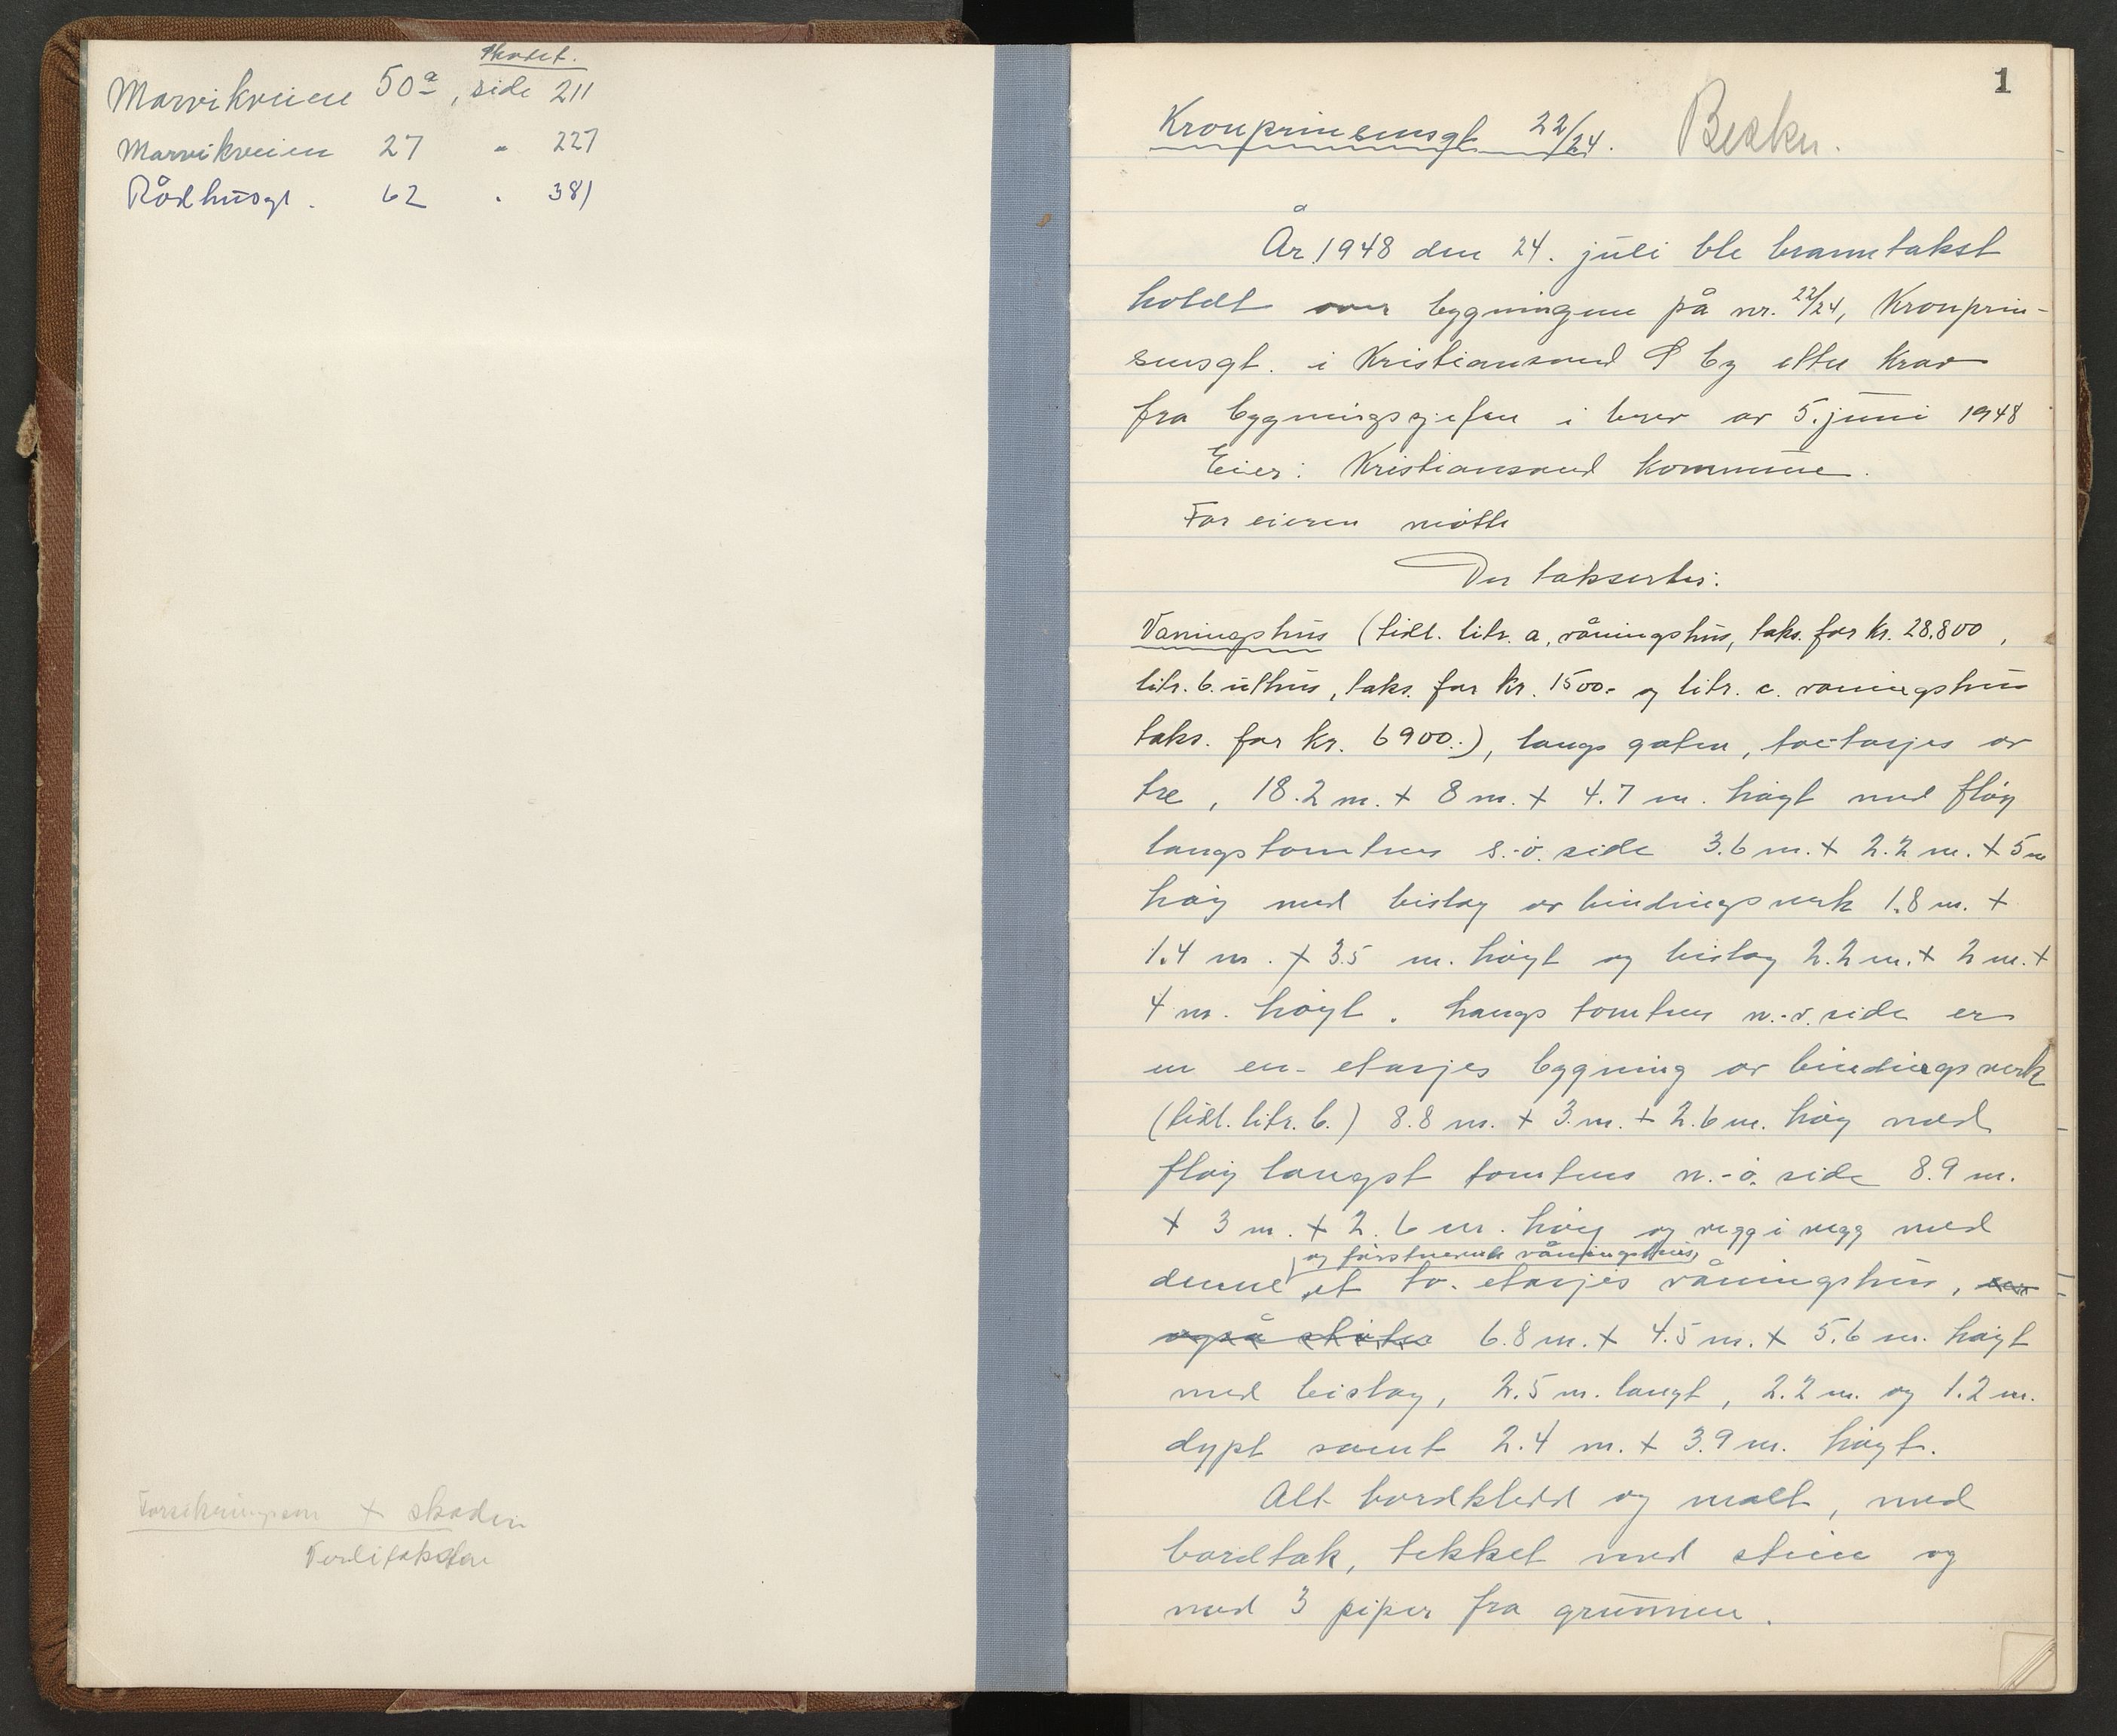 Skadet.
Marvikveien 50a, side 211
Marvikveien 27 " 227
Rådhusgt. 62 " 381
Forsikringssum + skaden
Verditaksten
1
Kronprinsensgt. 22/24.
År 1948 den 24. juli ble branntakst
holdt over bygningene på nr. 22/24, Kronprin-
sensgt. i Kristiansand S by etter krav
fra bygningssjefen i brev av 5. juni 1948
Eier: Kristiansand kommune.
For eieren møtte
Der taksertes:
Våningshus (tidl. litr. a, våningshus, taks. for kr. 28.800,
litr. b. uthus, taks. for kr. 1500.- og litr. c. våningshus
taks. for kr. 6900.-), langs gaten, toetasjes av
tre, 18.2 m. + 8 m. + 4.7 m. høgt med fløy
langs tomtens s.-ø. side 3.6 m. + 2.2 m. + 5 m
høy med bislag av bindingsverk 1.8 m. +
1.4 m. + 3.5 m. høgt og bislag 2.2 m. + 2 m. +
4 m. høgt. Langs tomtens n.-v. side er
en en-etasjes bygning av bindingsverk
(tidl. litr. b.) 8.8 m. + 3 m. + 2.6 m. høy med
fløy langst tomtens n.-ø. side 8.9 m.
+ 3 m. + 2.6 m. høy og vegg i vegg med
og førstnevnte våningshus,
denne et to-etasjes våningshus,
også 6.8 m. + 4.5 m. + 5.6 m. høgt
med bislag, 2.5 m. langt, 2.2 m. og 1.2 m.
dypt samt 2.4 m. + 3.9 m. høgt.
Alt bordkledd og malt, med
bordtak, tekket med stein og
med 3 piper fra grunnen.